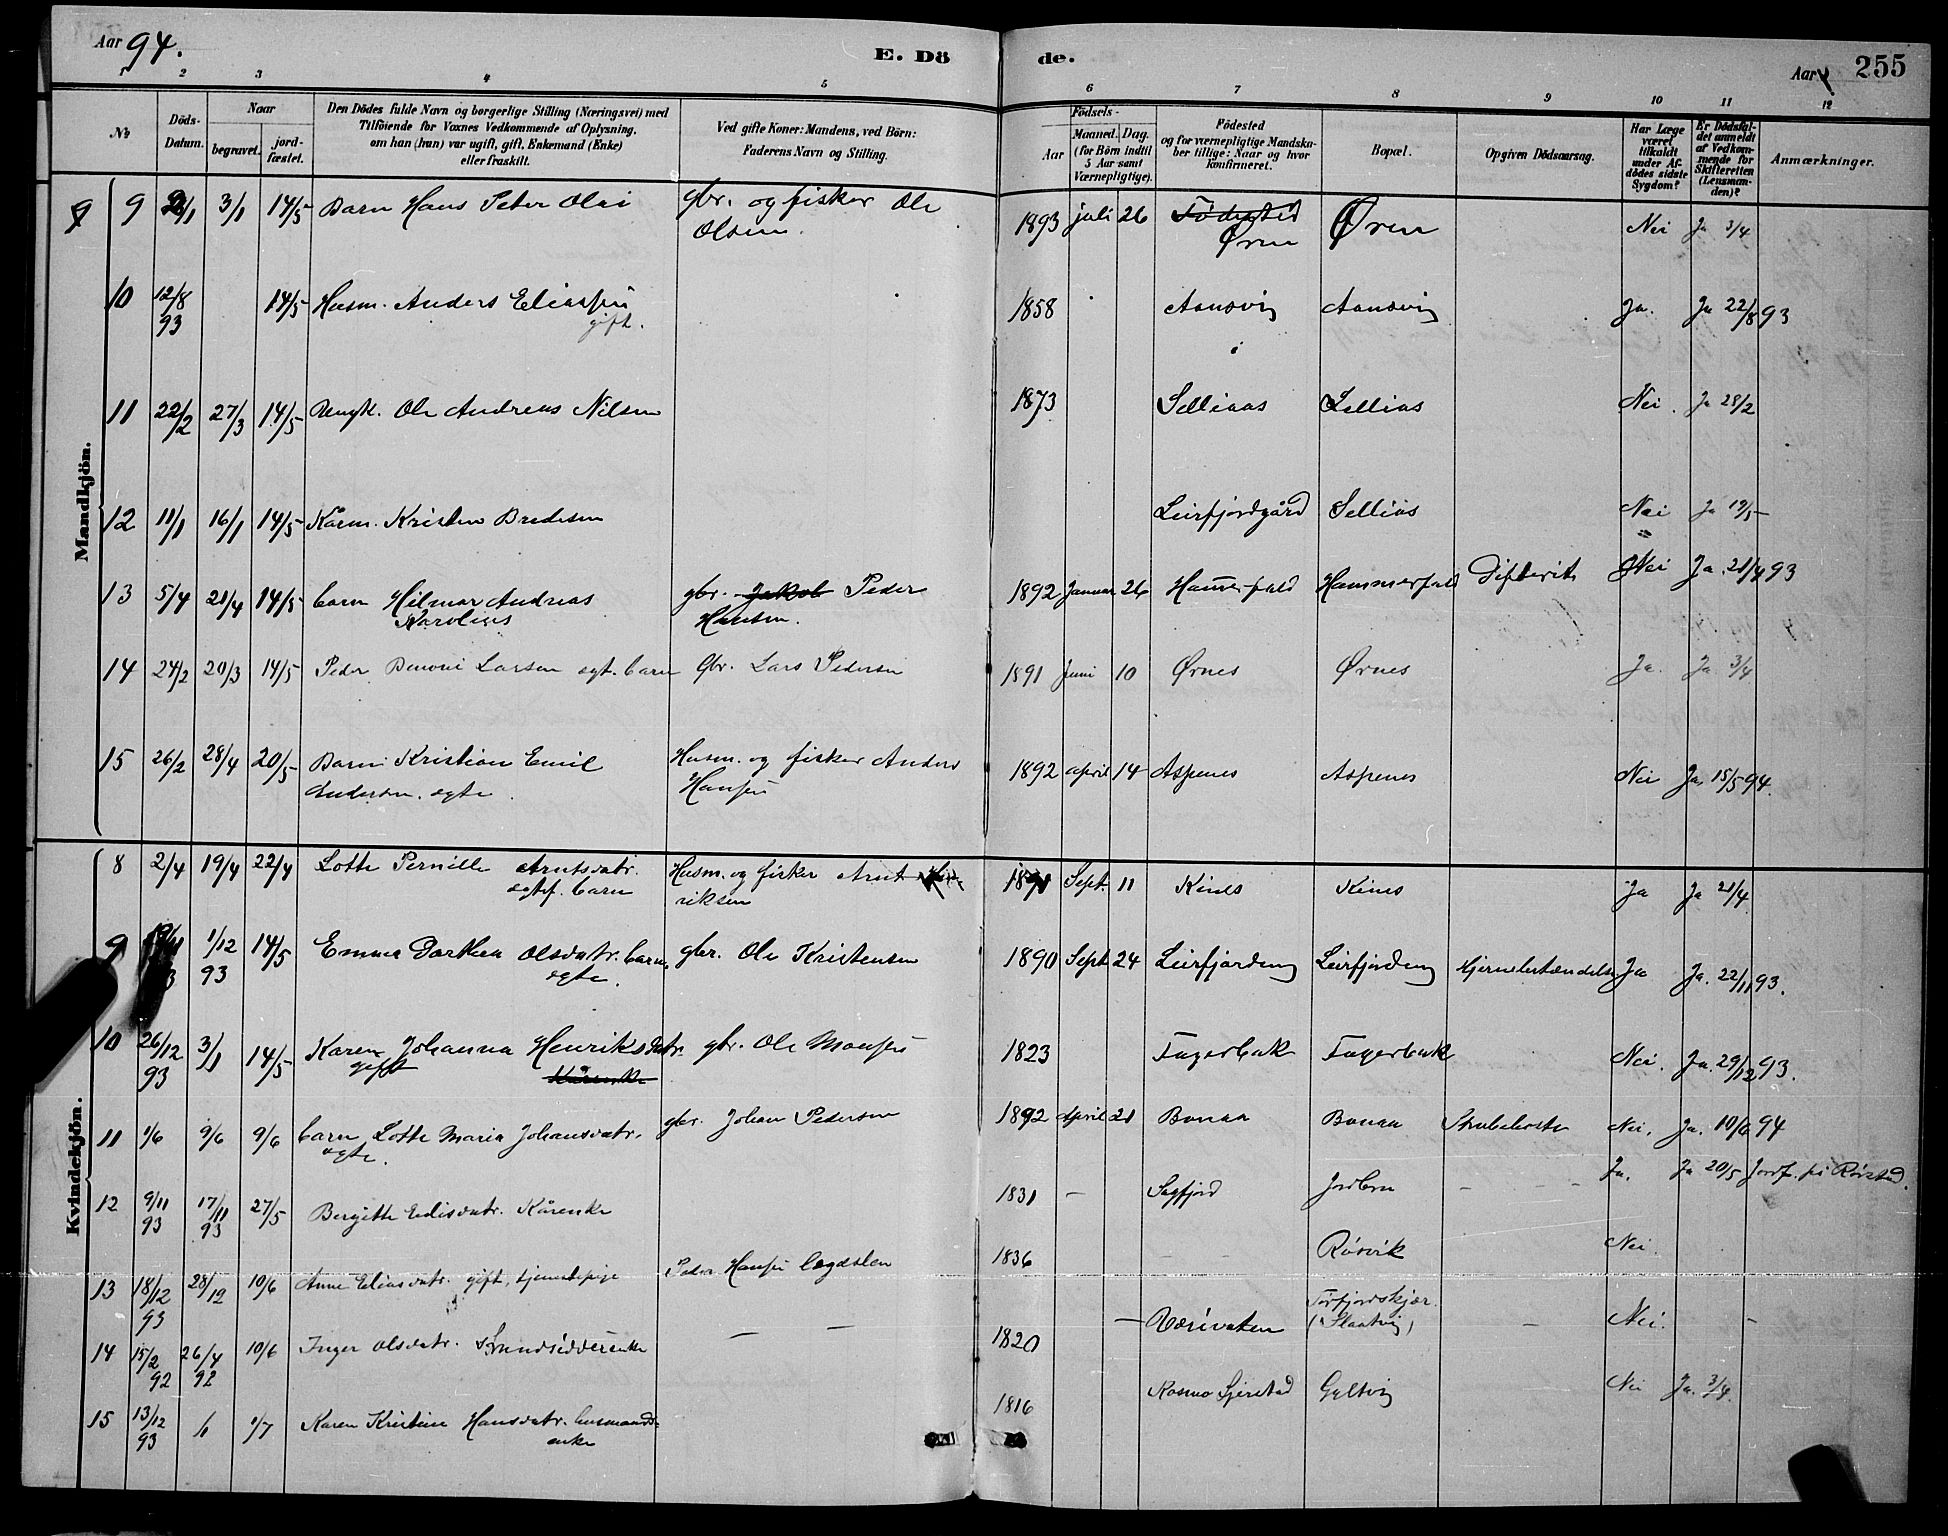 Aar 94.
E. Dö
de.
Aar
255
1 2 3 4 5 6 7 8 9 10 11 12
No
Döds-
Datum.
Naar
begravet.
jord-
fæstet.
Den Dödes fulde Navn og borgerlige Stilling (Næringsvei) med
Tilföiende for Voxnes Vedkommende af Oplysning,
om han (hun) var ugift, gift, Enkemand (Enke)
eller fraskilt.
Ved gifte Koner: Mandens, ved Börn:
Faderens Navn og Stilling.
Födsels-
Aar
Maaned. Dag.
(for Börn indtil
5 Aar samt
Værnepligtige).
Födested
og for værnepligtige Mandska-
ber tillige: Naar og hvor
konfirmeret.
Bopæl.
Opgiven Dödsaarsag.
Har Læge
været
tilkaldt
under Af-
dödes sidste
Sygdom?
Er Dödsfal-
det anmeldt
af Vedkom-
mende for
Skifteretten
(Lensman-
den)?
Anmærkninger.
Mandkjön.
9 3/1 14/5 Barn Hans Peter Olai gbr. og fisker Ole 1893 juli 26 Födested Øren Nei Ja 3/4
Olsen. Øren
10 12/8 14/5 Husm. Anders Eliassen 1858 Aansvig Aansvig Ja. Ja 22/8 93
93 gift.
11 22/2 27/3 14/5 Ungk. Ole Andreas Nilsen 1873 Selliaas Sellias Nei. Ja 28/2
12 11/1 16/1 14/5 Kårm. Kristen Bredesen Leirfjordgård Sellias Nei Ja 19/5
13 5/4 21/4 14/5 barn Hilmar Andreas gbr. Jakob Peder 1892 Januar 26 Hammerfald Hammerfald Difterit Nei Ja. 21/4 93
Karolius Hansen.
14 24/2 20/3 14/5 Peder Benoni Larsen egt. barn Gbr. Lars Pedersen 1891 Juni 10 Ørnes Ørnes Ja. Ja 3/4
15 26/2 28/4 20/5 Barn Kristian Emil Husm. og fisker Anders 1892 april 14 Aspenes Aspenes Nei Ja, 15/5 94.
Andersen. egte. Hansen
Kvindekjön.
8 2/4 19/4 22/4 Lotte Pernille Arntsdatr. Husm. og fisker Arnt Sept. 11 Kines Kines Ja Ja 21/4
egtef. barn riksen
9 1/12 14/5 Emma Dorthea Olsdatr. barn, gbr. Ole Kristensen 1890 Sept 24 Leirfjorden Leirfjorden Hjernebetændelse Ja Ja. 22/11 93.
93 egte.
10 26/12 3/1 14/5 Karen Johanna Henriksdatr. gbr. Ole Monsen 1823 Fagerbak Fagerbak Nei. Ja. 29/12 93.
93 gift Kårenke
11 1/6 9/6 9/6 barn Lotte Maria Johansdatr. gbr. Johan Pedersen 1892 April 21 Bonaa Bonaa Strubehoste Nei. Ja. 10/6 94
egte.
12 9/11 17/11 27/5 Bergitte Elisdatr. Kårenke 1831 – Sagfjord Jordbru – – – Ja. Ja 20/5 Jordf. på Rörstad.
93 93
13 18/12 28/12 10/6 Anne Eliasdatr. gift, tjenestepige Peder Hansen lægdslem 1836 – – Rösvik Nei.
93
14 15/2 26/4 10/6 Inger Olsdatr. – – 1820 – Tørfjordskjær. – Nei. –
92 92 (Slaatvig)
15 13/12 1/7 Karen Kristine Hansdatr. husmands- 1816 Gyltvig Nei Ja. 3/4
93 enke